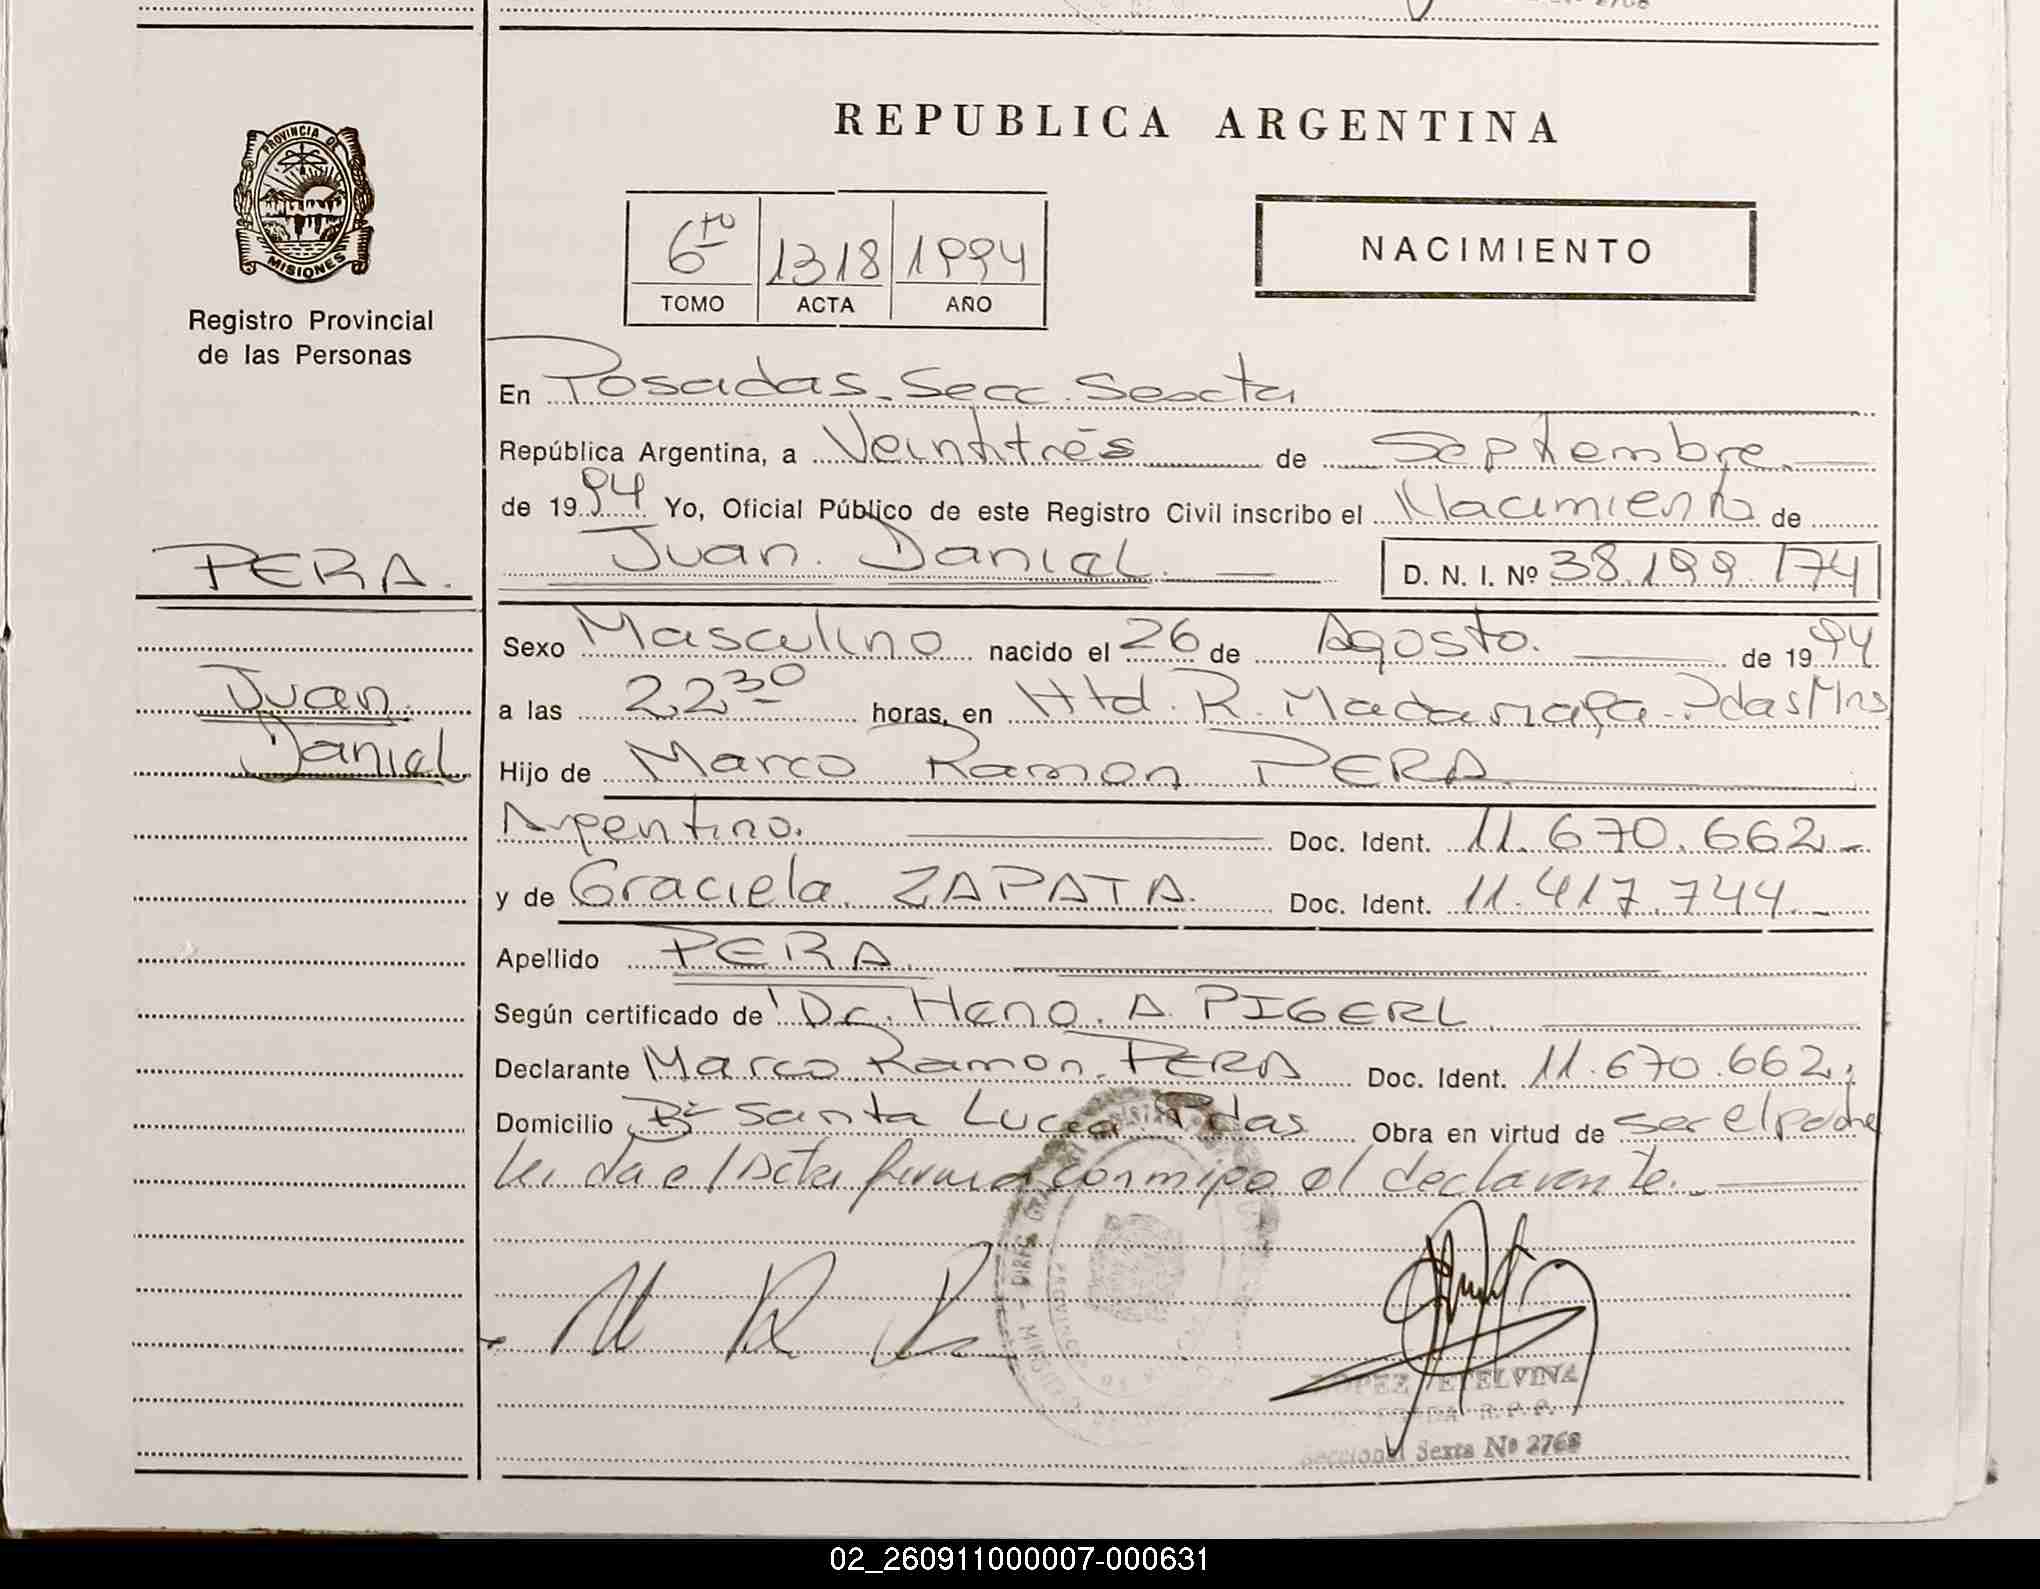 REPUBLICA ARGENTINA
PROVINCIA DE
MISIONES
Registro Provincial
de las Personas
6to 1318 1994
TOMO ACTA AÑO
NACIMIENTO
En Posadas. Secc. Sexta
República Argentina, a Veintitrés de Septiembre.
de 1994 Yo, Oficial Público de este Registro Civil inscribo el Nacimiento de
PERA.
Juan. Daniel. D. N. I. Nº 38.199.174
Sexo Masculino nacido el 26 de Agosto. de 1994
Juan
Daniel
a las 22 30 horas, en Htal. R. Madariaga. Pdas Mnes
Hijo de Marco Ramon PERA
Argentino. Doc. Ident. 11.670.662.-
y de Graciela ZAPATA. Doc. Ident. 11.417.744.-
Apellido PERA.
Según certificado de Dr. A. PIGERL
Declarante Marco Ramon PERA Doc. Ident. 11.670.662;
Domicilio Bº Santa Lucia Pdas Obra en virtud de ser el padre
Leida el Acta firma conmigo el declarante.
M R P
LOPEZ ETELVINA
R.P.P.
Seccional Sexta Nº 2768
02_260911000007-000631